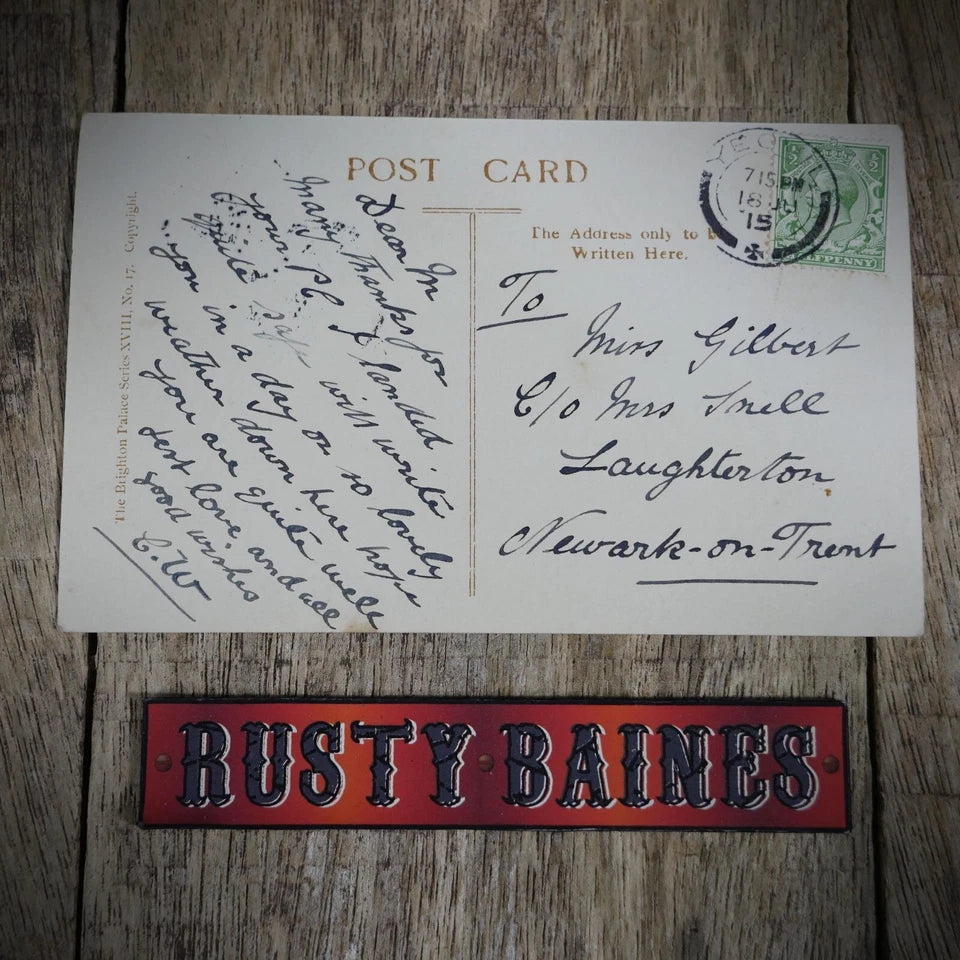 POST CARD
The Brighton Palace Series XVIII, No. 17. Copyright.
Dear M
Many Thanks for
your PC I landed
quite safe will write
you in a day or so lovely
weather down here hope
you are quite well
best love and all
good wishes
C.W
The Address only to b
Written Here.
YEO
7 15 PM
18 JU
15
½ ½
HALFPENNY
To
Miss Gilbert
C/o Mrs Snell
Laughterton
Newark-on-Trent
RUSTY BAINES